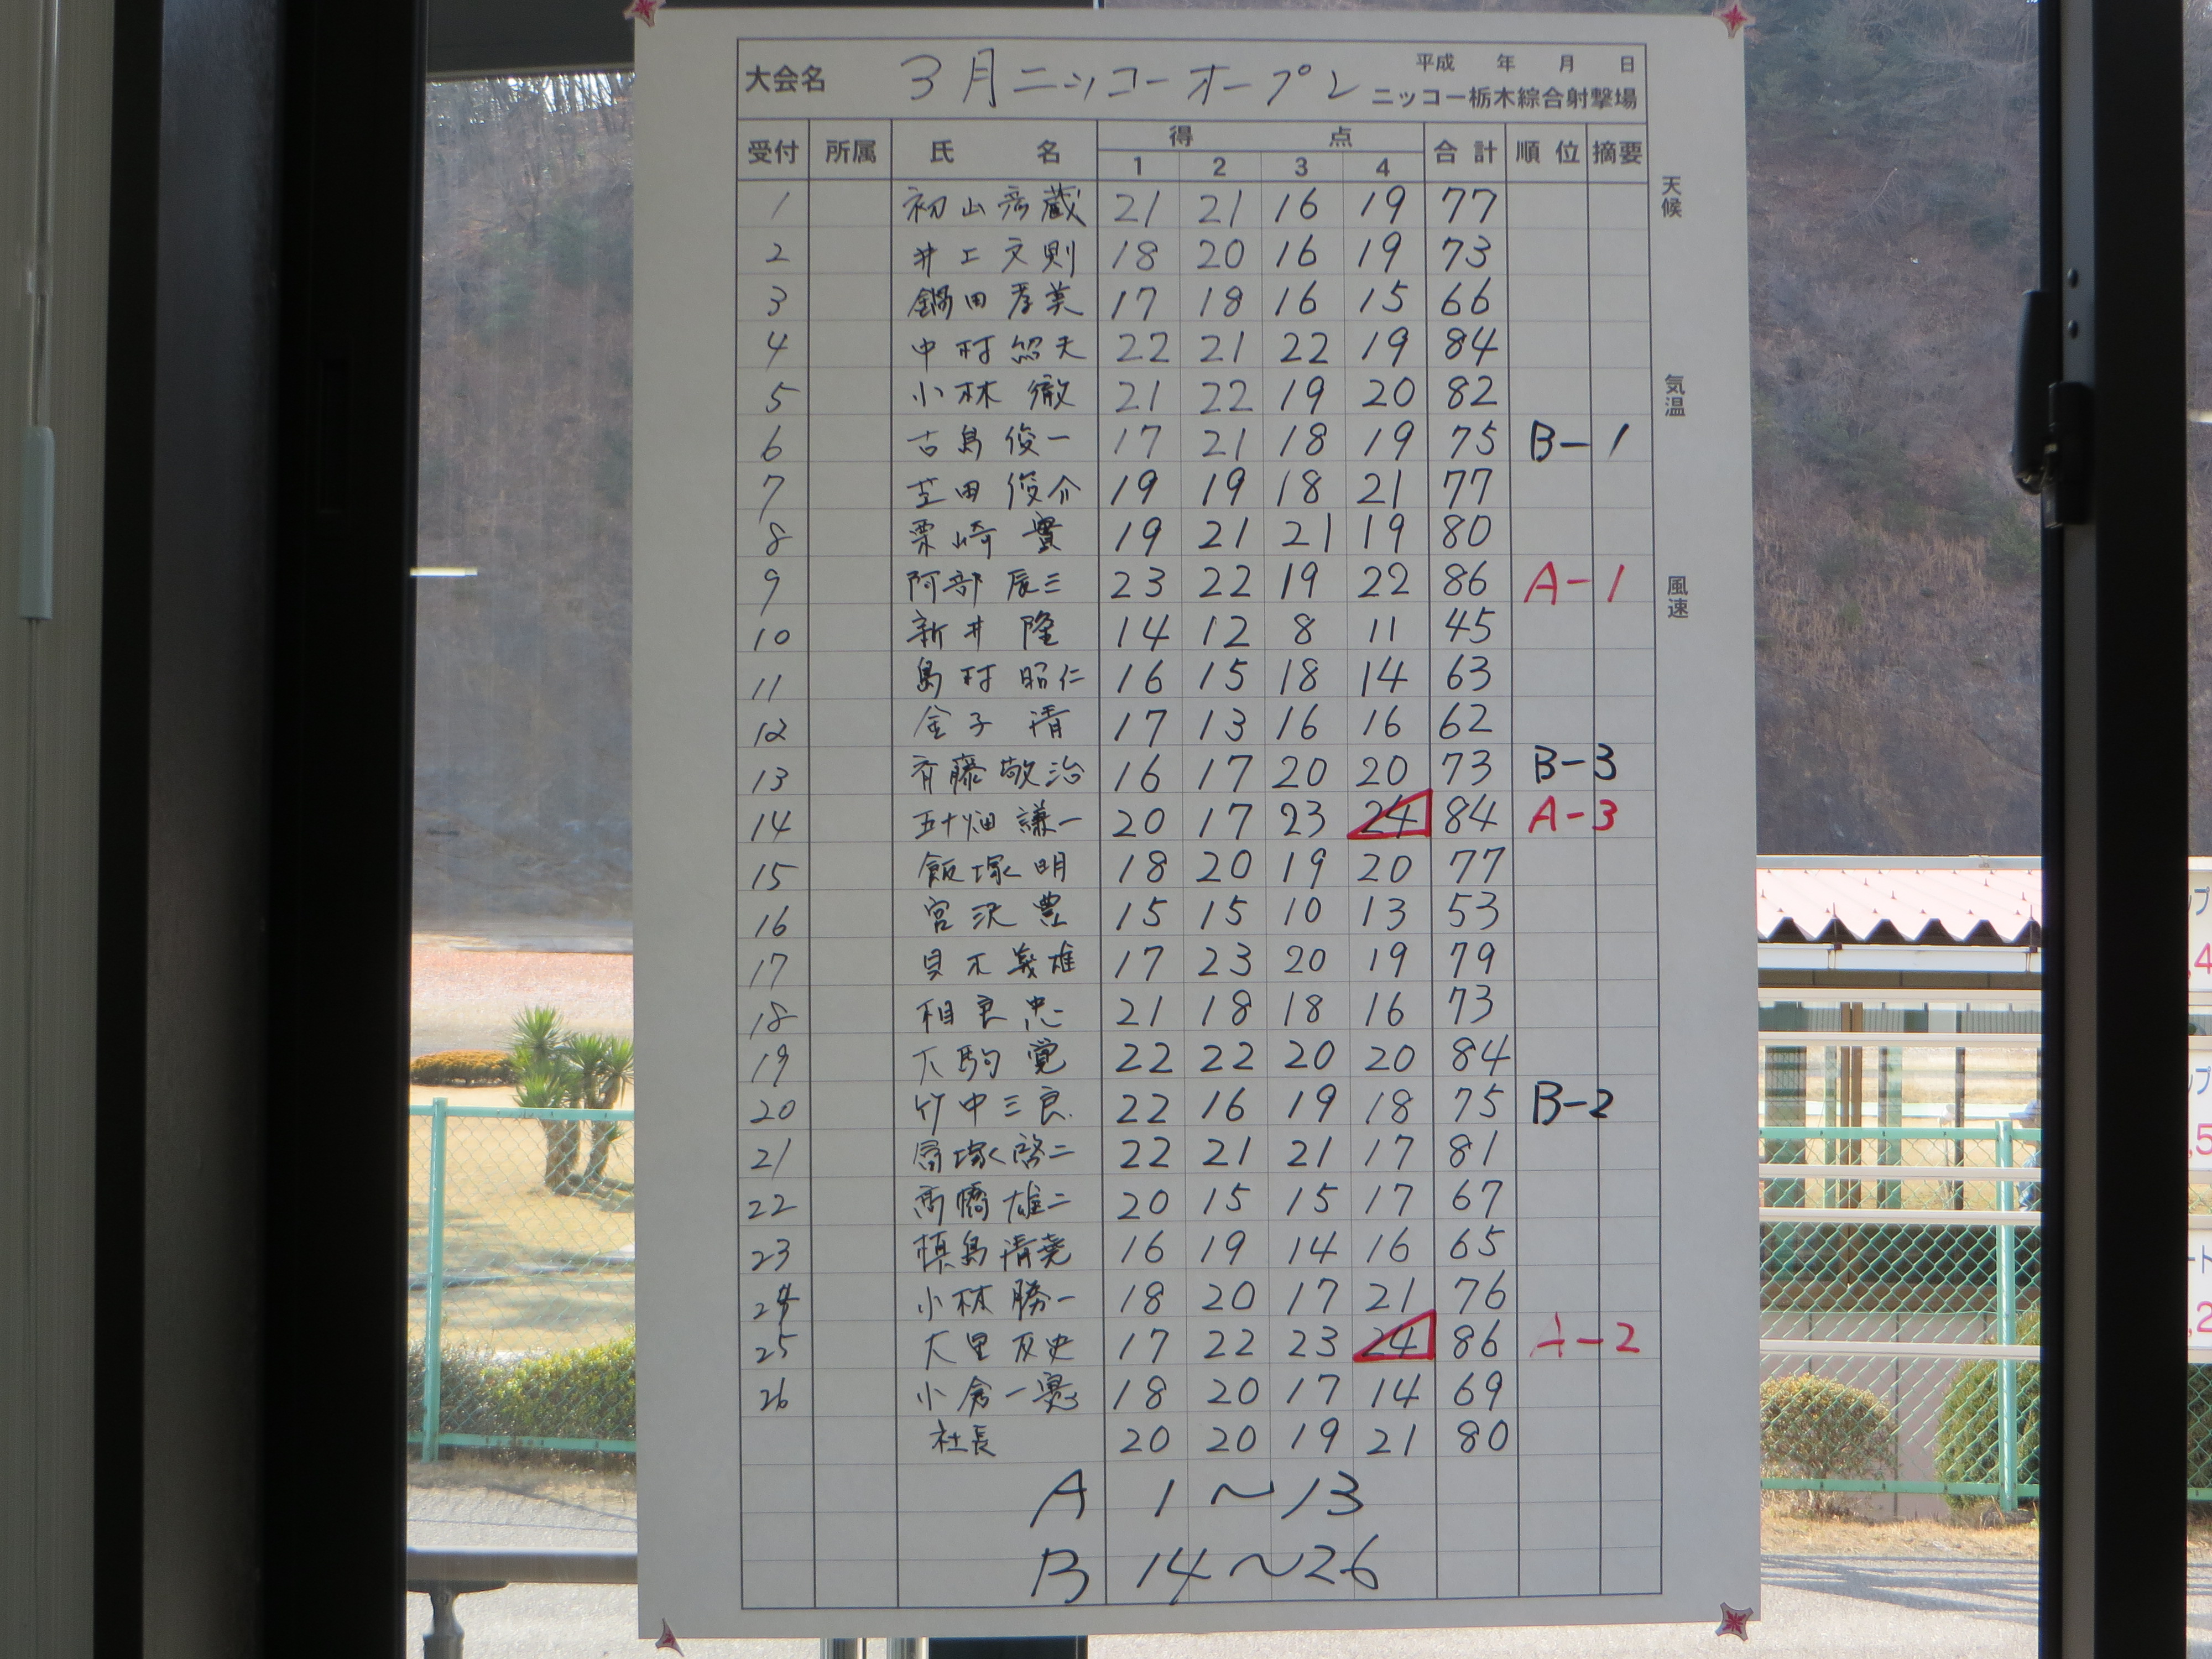 大会名 3月ニッコーオープン 平成 年 月 日
ニッコー栃木綜合射撃場
受付 所属 氏 名 得 点 合計 順位 摘要
1 2 3 4
天候
気温
風速
1 初山彦蔵 21 21 16 19 77
2 井上文則 18 20 16 19 73
3 鍋田孝美 17 18 16 15 66
4 中村紹夫 22 21 22 19 84
5 小林 徹 21 22 19 20 82
6 古島俊一 17 21 18 19 75 B-1
7 芝田俊介 19 19 18 21 77
8 栗崎 實 19 21 21 19 80
9 阿部辰三 23 22 19 22 86 A-1
10 新井 隆 14 12 8 11 45
11 島村昭仁 16 15 18 14 63
12 金子 清 17 13 16 16 62
13 斉藤敬治 16 17 20 20 73 B-3
14 五十畑謙一 20 17 23 24 84 A-3
15 飯塚明 18 20 19 20 77
16 宮沢豊 15 15 10 13 53
17 木義雄 17 23 20 19 79
18 相良忠 21 18 18 16 73
19 大駒覚 22 22 20 20 84
20 竹中三良 22 16 19 18 75 B-2
21 塚啓二 22 21 21 17 81
22 高橋雄二 20 15 15 17 67
23 槙島清 16 19 14 16 65
24 小林勝一 18 20 17 21 76
25 大里友史 17 22 23 24 86 A-2
26 小倉一 18 20 17 14 69
社長 20 20 19 21 80
A 1～13
B 14～26